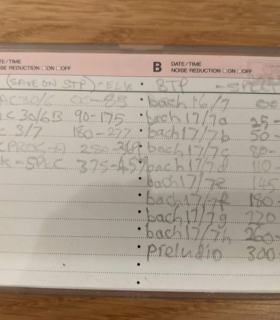 DATE/TIME
NOISE REDUCTION □ON □OFF
(SAVE ON STP)
AC30/6 00-88
C 30/6B 90-175
C 3/7 180-277
375-457
B DATE/TIME
NOISE REDUCTION □ON □OFF
BTP
bach 16/7 00
bach 17/7a 25-
bach 17/7b 50-
bach 17/7c 80-
bach 17/7d 110-
bach 17/7e
bach 17/7f 180-
bach 17/7g 220
bach 17/7h 260-
preludio 300